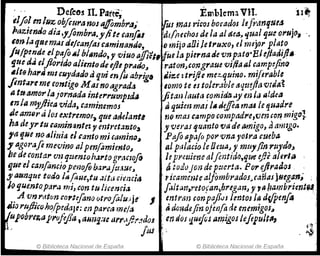 Delcos II. Parte,
el ſol en luz obſcura nos aſſombra;
haziendo dia, y ſombra, y ſi te canſas
con la que mas deſcanſas caminando,
ſuſpende el paſo al blando, y vivo aſſiẽto
que da el florido aliento de eſte prado,
alto hará mi cuydado à quien ſu abrigo
ſentare me contigo. Mas no agrada
à tu amor la jornada interrumpida
en la myſtica vida, caminemos
de amar à los extremos, que adelante
ha de yr tu camin ante, y entretanto,
ya que no aliuia el canto mi camino,
y agora ſe mevino al penſamiento,
he de contar un quento harto gracioſo
que el canſancio penoſo haràſuaue,
y aunque todo lo ſaue, tu alta ciencia
lo quento para mi, con tu licencia.
A un raton corteſano otro ſaluaje
dio ruſtico hoſpedaje: en parca meſa
ſu pobreza profeſſa, aunque arrojados
ſus
Emblema VII.
ſus mas ricos bocados le franquea
deſhechos de la aldea, qual que orujo,
o mijo alli le truxo, el mejor plato
fue la pierna de un pato. El eſtadiſta
raton, con grave viſta al campeſino
dize: triſte mezquino. miſerable
como te es tolerable aqueſta vida?
ſitan ſauta comida ay en la aldea
à quien mas la deſſea mas le quadre
no mas campo compadre, ven con migo
y veras quanto va de amigo, à amigo.
Paſo apaſo por una yotra cueba
al palacio le lleua, y muy ſin ruydo,
le preuiene al ſentido, que eſte alerta
à todo ſon de puerta. Por eſtrados
ricamente alfombrados, cañas juegan,
ſaltan, retoçan, bregan, y a hambrientos
entran con paſſos lentos la deſpenſa
à donde ſin ofenſa de enemigos,
en dos queſos amigos le ſepulta,
© Biblioteca Nacional de España
© Biblioteca Nacional de España